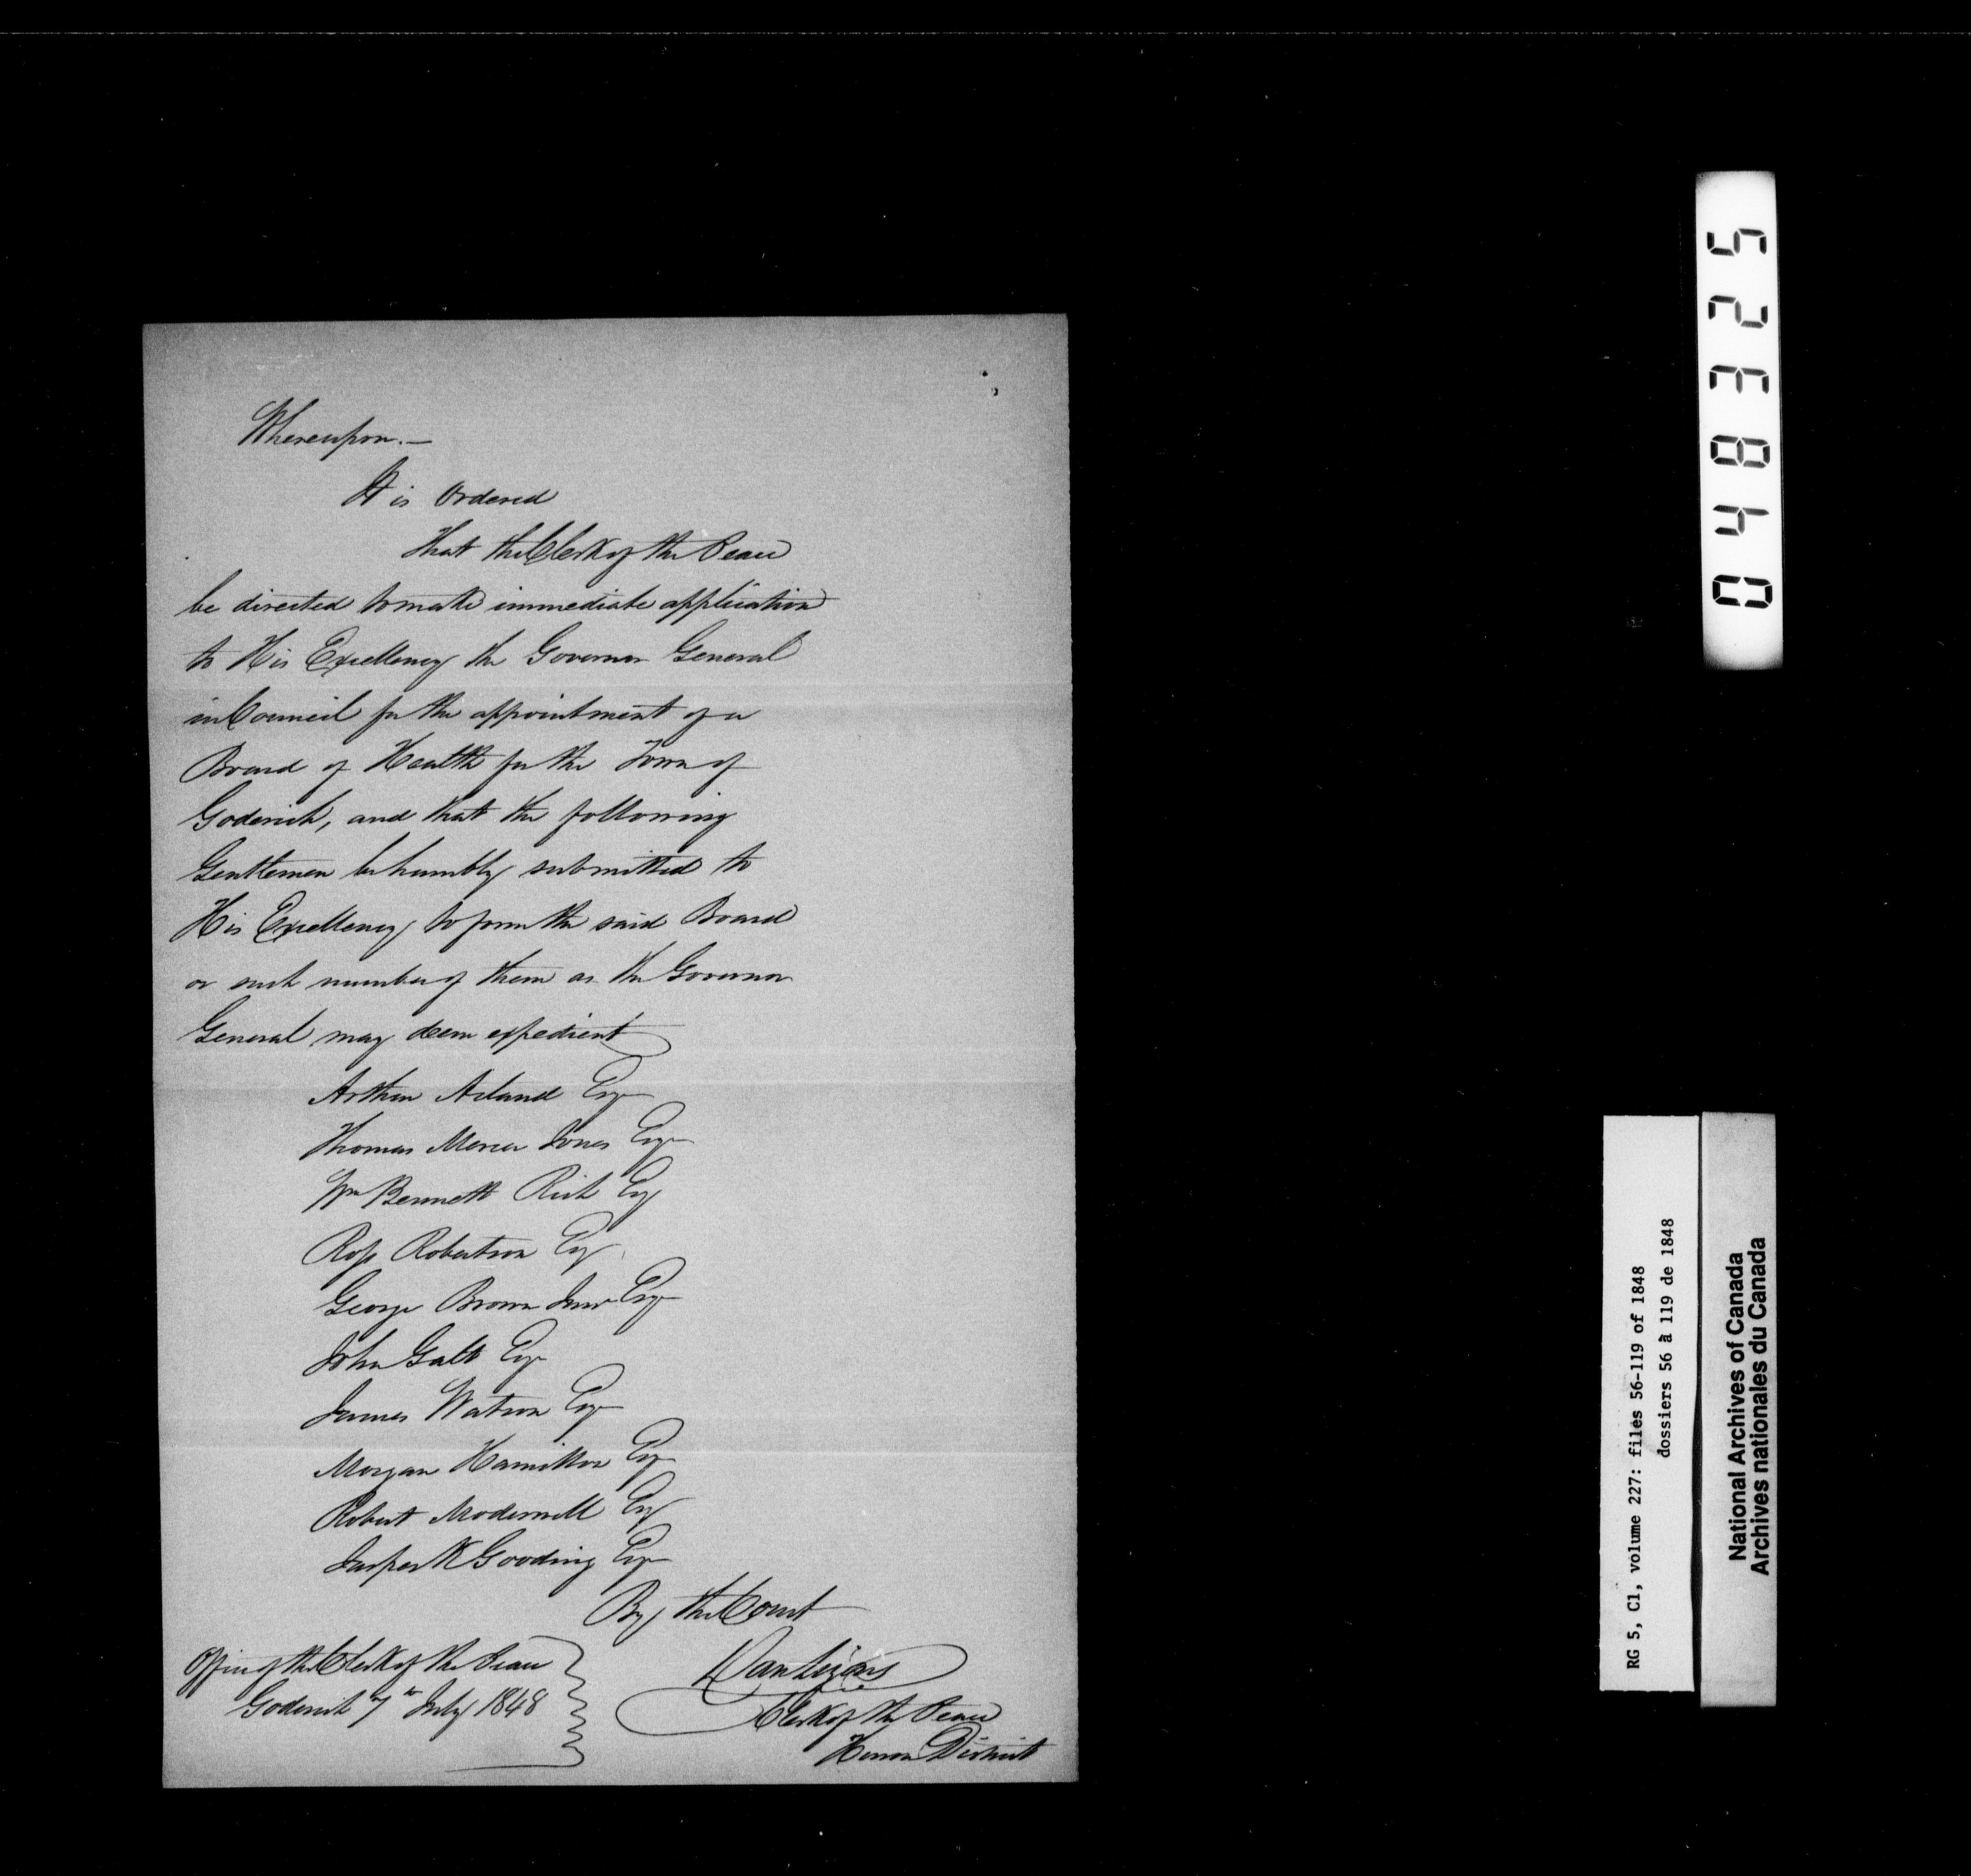 Whereupon.—
It is Ordered
That the Clerk of the Peace
be directed to make immediate application
to His Excellency the Governor General
in Council for the appointment of a
Board of Health for the Town of
Goderich, and that the following
Gentlemen be humbly submitted to
His Excellency to form the said Board
or such number of them as the Governor
General may deem expedient
Arthur Acland Esqr
Thomas Mercer Jones Esqr
Wm Bennett Rich Esq
Ross Robertson Esq
George Brown Junr Esqr
John Galt Esqr
James Watson Esqr
Morgan Hamilton Esqr
Robert Moderwell Esq
Jasper K Gooding Esqr
By the Court
Dan Lizars
Clerk of the Peace
Huron District
Office of the Clerk of the Peace
Goderich 7th July 1848
048325
RG 5, C1, volume 227: files 56-119 of 1848
dossiers 56 à 119 de 1848
National Archives of Canada
Archives nationales du Canada